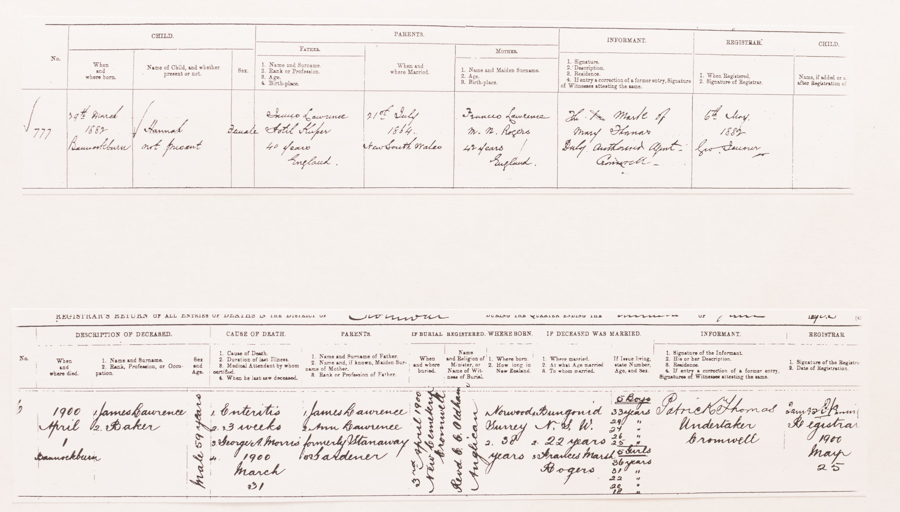 CHILD.
PARENTS.
INFORMANT.
REGISTRAR.
CHILD.
No.
When
and
where born.
Name of Child, and whether
present or not.
Sex.
FATHER.
1. Name and Surname.
2. Rank or Profession.
3. Age.
4. Birth-place.
When
and
where Married.
MOTHER.
1. Name and Maiden Surname.
2. Age.
3. Birth-place.
1. Signature.
2. Description.
3. Residence.
4. If entry a correction of a former entry, Signature
of Witnesses attesting the same.
1. When Registered.
2. Signature of Registrar.
Name, if added
after Registration
777
29th March
1882
Bannockburn
Hannah
not present
Female
James Lawrence
Hotel Keeper
40 years
England.
21st July
1864.
New South Wales
Frances Lawrence
M. N. Rogers
42 years
England.
The X Mark of
Mary
Duly Authorised Agent.
Cromwell
6th May.
1882
Geo.
REGISTRAR'S RETURN OF ALL ENTRIES OF DEATHS IN THE DISTRICT OF Cromwell DURING THE QUARTER ENDING THE OF June
No.
DESCRIPTION OF DECEASED.
When
and
where died.
1. Name and Surname.
2. Rank, Profession, or Occu-
pation.
Sex
and
Age.
CAUSE OF DEATH.
1. Cause of Death.
2. Duration of last Illness.
3. Medical Attendant by whom
certified.
4. When he last saw deceased.
PARENTS.
1. Name and Surname of Father.
2. Name and, if known, Maiden Sur-
name of Mother.
3. Rank or Profession of Father.
IF BURIAL REGISTERED.
When
and
where
buried.
Name
and Religion of
Minister, or
Name of Wit-
ness of Burial.
WHERE BORN.
1. Where born
2. How long in
New Zealand.
IF DECEASED WAS MARRIED.
1. Where married.
2. At what Age married
3. To whom married.
If Issue living,
state Number,
Age, and Sex.
INFORMANT.
1. Signature of the Informant.
2. His or her Description.
3. Residence.
4. If entry a correction of a former entry,
Signatures of Witnesses attesting the same.
REGISTRAR.
1. Signature of the
2. Date of Registration.
1900
April
1
Bannockburn
1. James Lawrence
2. Baker
Male 59 years
1. Enteritis
2. 3 weeks
3. George A. Morris
4. 1900
March
31
1. James Lawrence
2. Ann Lawrence
formerly Stanaway
3. Gardener
3rd April 1900
New Cemetery
Cromwell
Revd C C Oldham
Anglican
Norwood
Surrey
2. 38
years
Gungonid
N. S. W.
2. 22 years
3. Frances Marsh
Rogers
5 Boys
33 years
29 "
5 Girls
36 years
31 "
22 "
Patrick Thomas
Undertaker
Cromwell
Registrar
1900
May
25